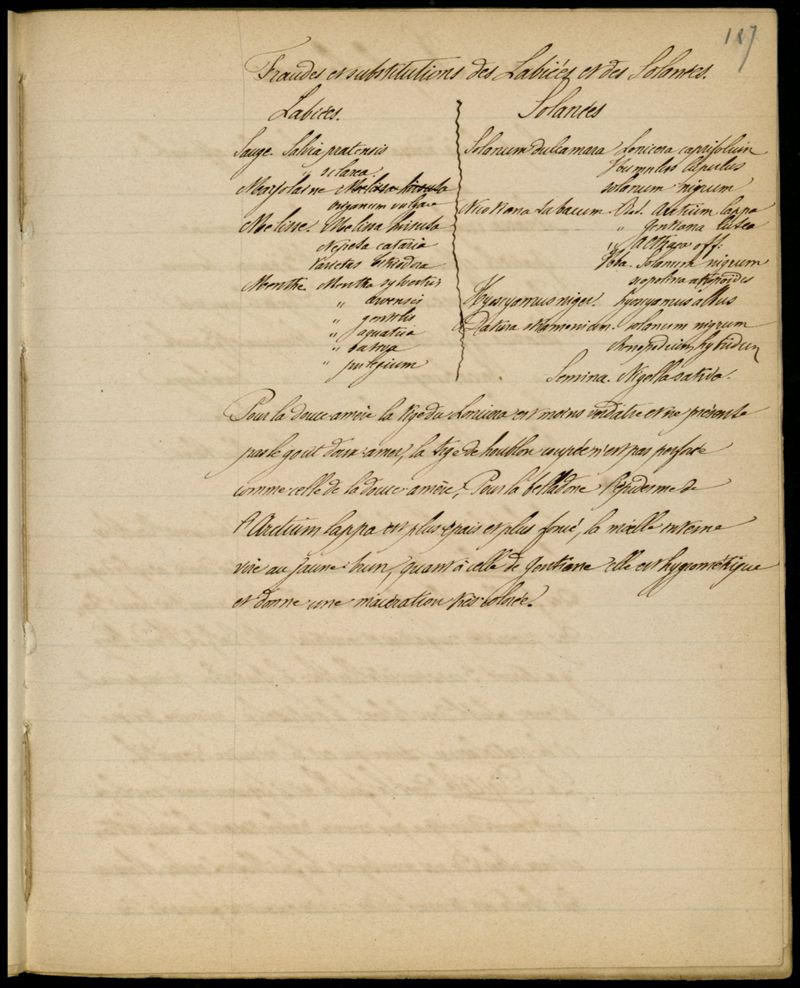 117
Fraudes et substitutions des Labiées et des Solanées.
Labiées.
Sauge. Salvia pratensis
sclarea.
Marjolaine Melissa hirsuta
origanum vulgare
Melisse. Melissa hirsuta
Nepeta cataria
Varietas citriodora
Menthe Mentha sylvestris
" arvensis
" gentilis
" aquatica
"
" pulegium
Solanées
Solanum dulcamara Lonicera caprifolium
Humulus lupulus
solanum nigrum
Nicotiana tabacum. Rad. Arctium lappa
" Gentiana lutea
" Althaea off.
Folia. Solanum nigrum
scopolina atropoides
Hyosyamus niger. hyosyamus albus
Datura stramonium. Solanum nigrum
chenopodium hybridum
Semina. Nigella sativa.
Pour la douce amère la tige du Lonicera est moins verdâtre et ne présente
pas le goût doux amer, la tige de houblon coupée n'est pas perforée
comme celle de la douce amère. Pour la belladone l'épiderme de
l'Arctium lappa est plus épais et plus foncé, la moelle interne
vire au jaune brun, quant à celle de gentiane elle est hygrométrique
et donne une macération très colorée.